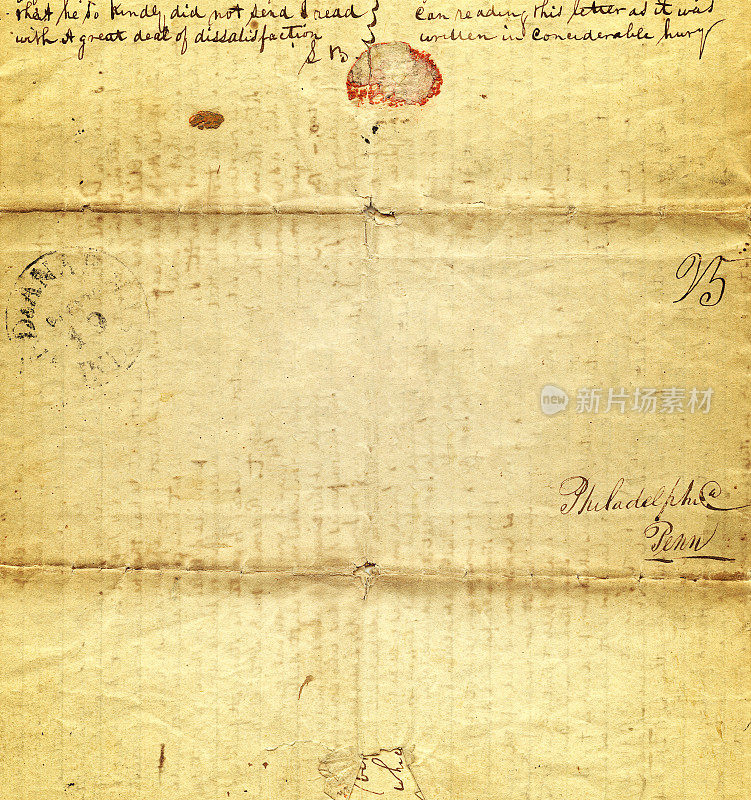 that he so kindly did not send I read
with A great deal of dissatisfaction
S B
can reading this letter as it was
written in conciderable hury
DIANA
15
25
new 新片场
Philadelphia
Penn
whic